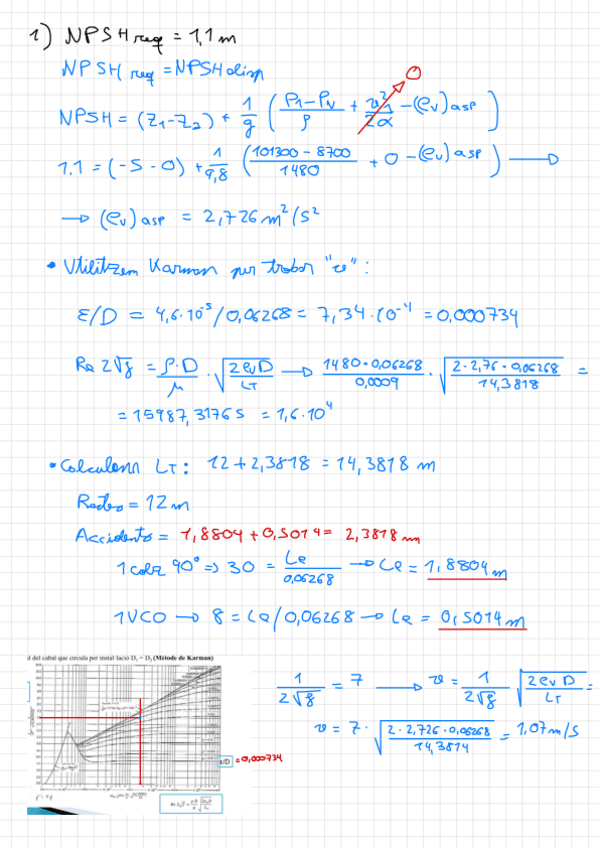 1) NPSH req = 1,1 m
NPSH req = NPSH disp
NPSH = (Z1-Z2) + 1/g ( (P1-Pv)/ρ + v²1/2α - (ev) asp ) 0
1.1 = (-5-0) + 1/9,8 ( (101300 - 8700)/1480 + 0 - (ev) asp ) →
→ (ev) asp = 2,726 m²/s²
• Utilitzem Karman per trobar "v":
ε/D = 4,6·10⁻⁵/0,06268 = 7,34·10⁻⁴ = 0,000734
Re 2√f = ρ·D/μ · √(2evD/LT) → 1480·0,06268/0,0009 · √(2·2,76·0,06268/14,3818) =
= 15987,31765 = 1,6·10⁴
• Calculem LT: 12+2,3818 = 14,3818 m
Rectes = 12 m
Accidents = 1,8804 + 0,5014 = 2,3818 m
1 colz 90° ⇒ 30 = Le/0,06268 → Le = 1,8804 m
1 VCO → 8 = Le/0,06268 → Le = 0,5014 m
l del cabal que circula per instal·lació D1 = D2 (Método de Karman)
1/2√f = 7 → v = 1/2√f √(2evD/LT) =
v = 7·√(2·2,726·0,06268/14,3814) = 1,07 m/s
ε/D = 0,000734